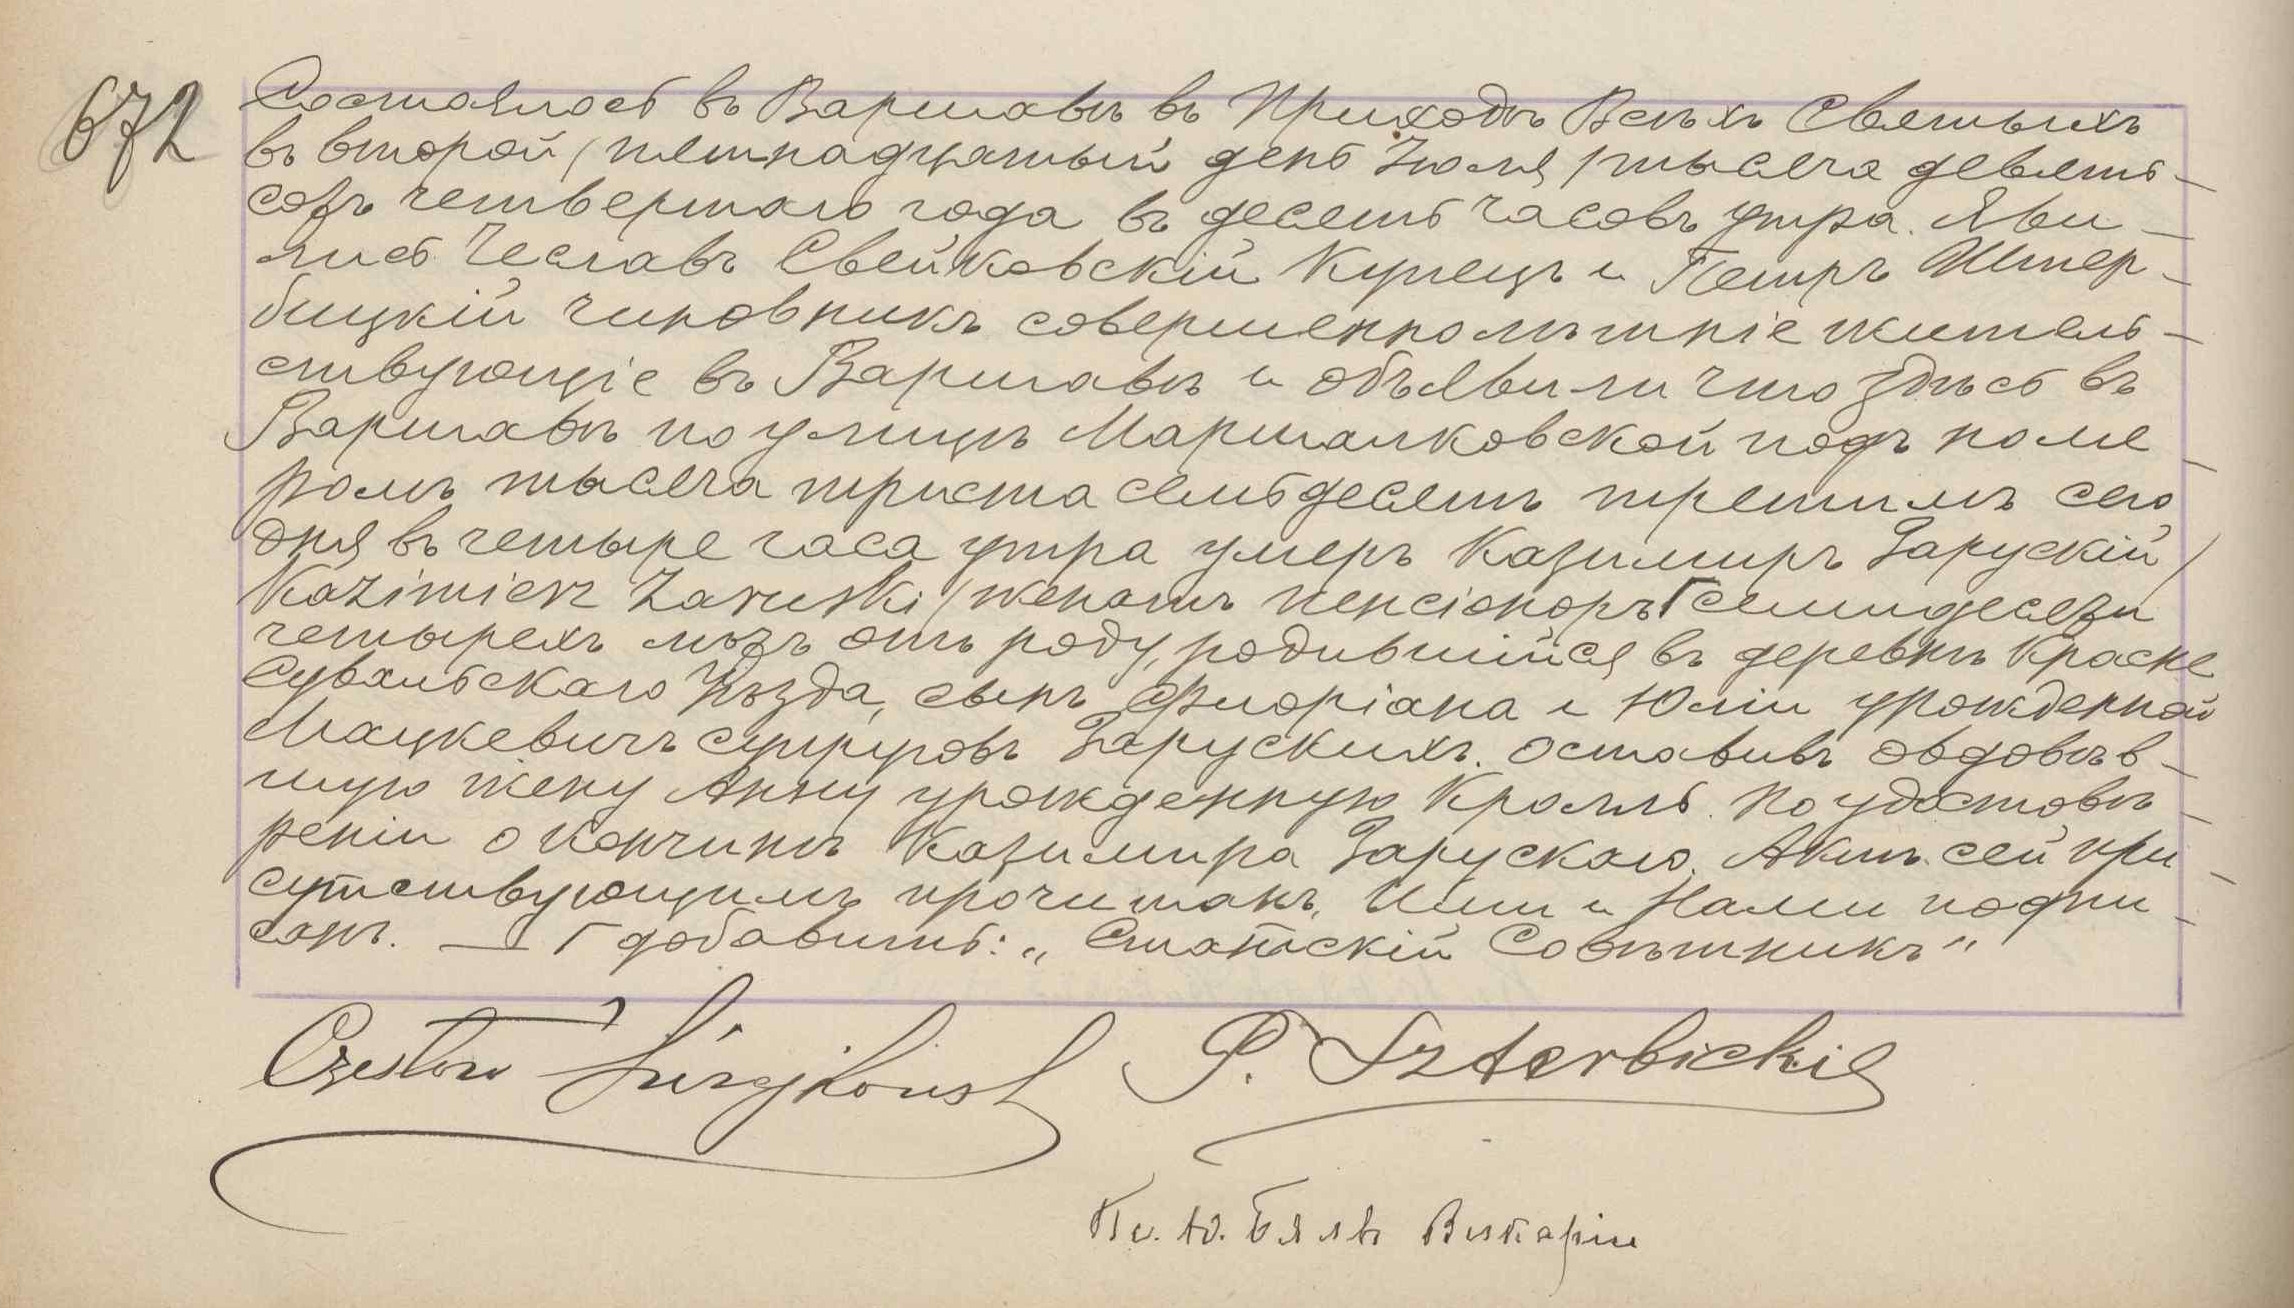 672
Состоялось въ Варшавѣ въ Приходѣ Всѣхъ Святыхъ
въ второй /пятнадцатый день Іюля/ тысяча девять-
сотъ четвертаго года въ десять часовъ утра. Яви-
лись Чеславъ Свейковскій Купецъ и Петръ Штер-
бицкій чиновникъ совершеннолѣтніе житель-
ствующіе въ Варшавѣ и объявили что здѣсь въ
Варшавѣ по улицѣ Маршалковской подъ номе-
ромъ тысяча триста семьдесятъ третимъ сего
дня въ четыре часа утра умеръ Казимиръ Зарускій/
Kazimierz Zaruski/ женатъ пенсіоноръ Г семидесяти
четырехъ лѣтъ отъ роду, родившійся въ деревнѣ Красне
Сувалкскаго Уѣзда, сынъ Флоріана и Юліи урожденной
Мацкевичъ супруговъ Зарускихъ. Оставивъ овдовѣв-
шую жену Анну урожденную Кролль. По удостовѣ-
реніи о кончинѣ Казимира Зарускаго. Актъ сей при-
сутствующимъ прочитанъ, Ими и Нами подпи-
санъ. — Г добавить: „Статскій Совѣтникъ"
Czesław Świeykowski P. Szterbicki
Кс. Ю. Бялъ Викарій